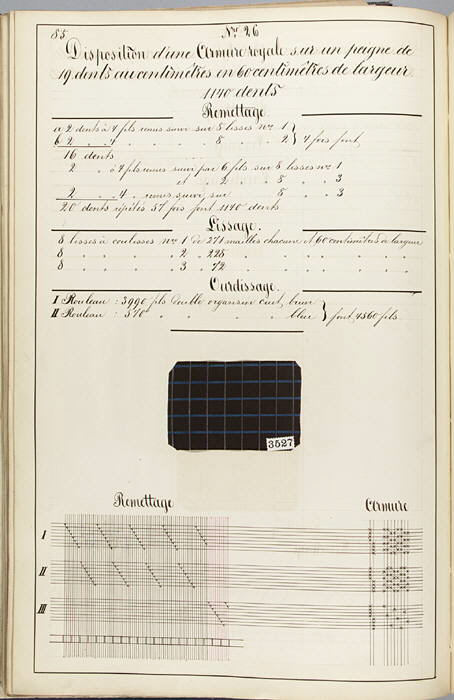 85
No 26
Disposition d'une Armure royale sur un peigne de
19 dents au centimètres en 60 centimètres de largeur
1140 dents
Remettage.
a 2 dents à 4 fils suivi sur 8 lisses no 1
b 2 . 4 . 8 . 2 } 4 fois font
16 dents
2 . à 4 fils suivi par 6 fils sur 8 lisses no 1
et . 2 . 8 . 3
2 . 4 . suivi sur 8 . 3
20 dents répétés 57 fois font 1140 dents
Lissage.
8 lisses à coulisses no 1 de 271 mailles chacune et 60 centimètres de largeur
8 . 2 . 228
8 . 3 . 72
Ourdissage.
I Rouleau : 3990 fils double organsin cuit, brun
II Rouleau : 570 . bleu } font 4560 fils
3527
Remettage
Armure
I
II
III